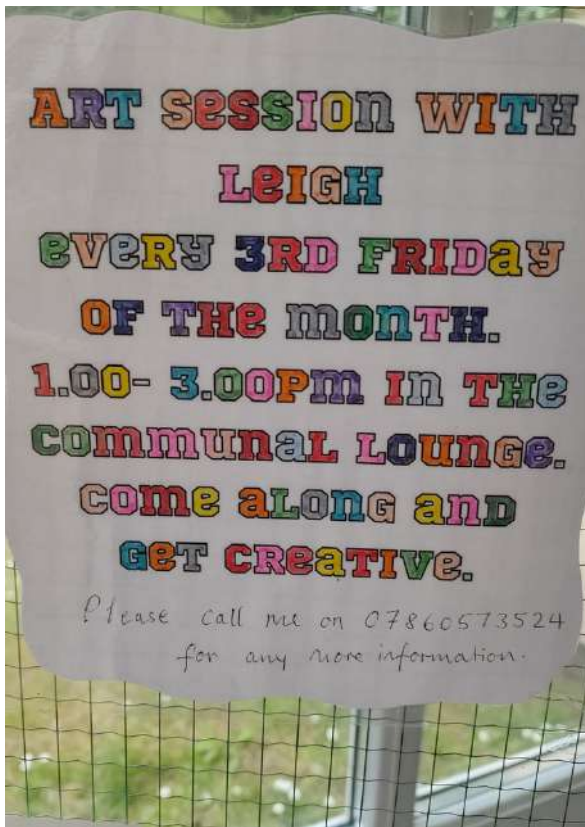 ART Session WITH
LeIGH
eveRy 3RD FRIDay
OF THe monTH.
1.00- 3.00Pm In THe
CommunaL LounGe.
Come aLonG anD
GeT CReaTIVe.
Please call me on 07860573524
for any more information.